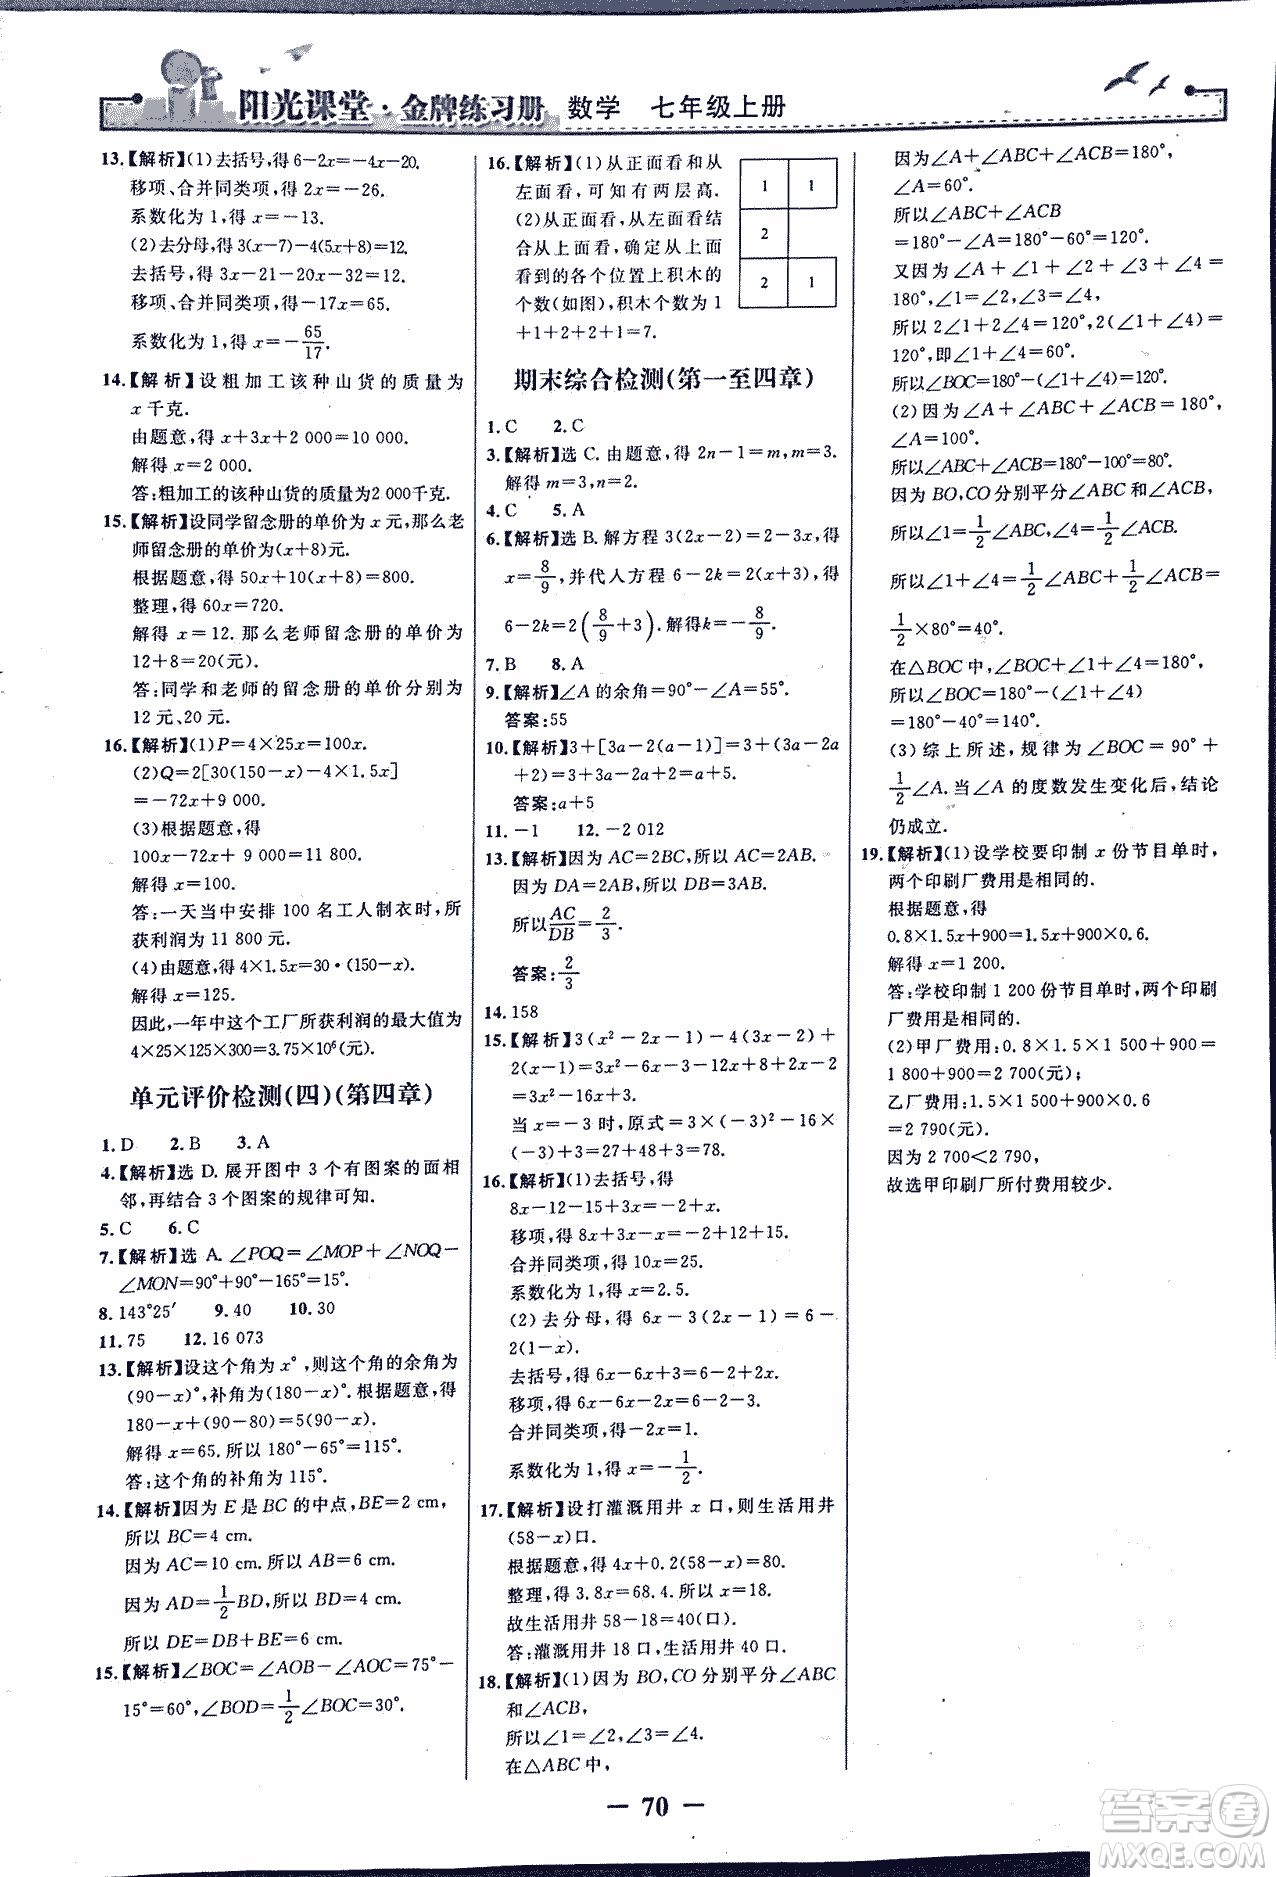 阳光课堂·金牌练习册 数学 七年级上册
13.【解析】(1)去括号,得 6-2x=-4x-20.
移项、合并同类项,得 2x=-26.
系数化为 1,得 x=-13.
(2)去分母,得 3(x-7)-4(5x+8)=12.
去括号,得 3x-21-20x-32=12.
移项、合并同类项,得-17x=65.
系数化为 1,得 x=-65/17.
14.【解析】设粗加工该种山货的质量为
x 千克.
由题意,得 x+3x+2 000=10 000.
解得 x=2 000.
答:粗加工的该种山货的质量为2 000千克.
15.【解析】设同学留念册的单价为 x 元,那么老
师留念册的单价为(x+8)元.
根据题意,得 50x+10(x+8)=800.
整理,得 60x=720.
解得 x=12. 那么老师留念册的单价为
12+8=20(元).
答:同学和老师的留念册的单价分别为
12 元、20 元.
16.【解析】(1)P=4×25x=100x.
(2)Q=2[30(150-x)-4×1.5x]
=-72x+9 000.
(3)根据题意,得
100x-72x+ 9 000=11 800.
解得 x=100.
答:一天当中安排 100 名工人制衣时,所
获利润为 11 800 元.
(4)由题意,得 4×1.5x=30·(150-x).
解得 x=125.
因此,一年中这个工厂所获利润的最大值为
4×25×125×300=3.75×10⁶(元).
单元评价检测(四)(第四章)
1.D 2.B 3.A
4.【解析】选 D. 展开图中 3 个有图案的面相
邻,再结合 3 个图案的规律可知.
5.C 6.C
7.【解析】选 A. ∠POQ=∠MOP+∠NOQ-
∠MON=90°+90°-165°=15°.
8.143°25′ 9.40 10.30
11.75 12.16 073
13.【解析】设这个角为 x°,则这个角的余角为
(90-x)°,补角为(180-x)°. 根据题意,得
180-x+(90-80)=5(90-x).
解得 x=65. 所以 180°-65°=115°.
答:这个角的补角为 115°.
14.【解析】因为 E 是 BC 的中点,BE=2 cm,
所以 BC=4 cm.
因为 AC=10 cm. 所以 AB=6 cm.
因为 AD=1/2BD,所以 BD=4 cm.
所以 DE=DB+BE=6 cm.
15.【解析】∠BOC=∠AOB-∠AOC=75°-
15°=60°,∠BOD=1/2∠BOC=30°.
16.【解析】(1)从正面看和从
左面看,可知有两层高.
(2)从正面看,从左面看结
合从上面看,确定从上面
看到的各个位置上积木的
个数(如图),积木个数为 1
+1+2+2+1=7.
1 1
2
2 1
期末综合检测(第一至四章)
1.C 2.C
3.【解析】选 C. 由题意,得 2n-1=m,m=3.
解得 m=3,n=2.
4.C 5.A
6.【解析】选 B. 解方程 3(2x-2)=2-3x,得
x=8/9,并代入方程 6-2k=2(x+3),得
6-2k=2(8/9+3).解得k=-8/9.
7.B 8.A
9.【解析】∠A 的余角=90°-∠A=55°.
答案:55
10.【解析】3+[3a-2(a-1)]=3+(3a-2a
+2)=3+3a-2a+2=a+5.
答案:a+5
11.-1 12.-2 012
13.【解析】因为 AC=2BC,所以 AC=2AB.
因为 DA=2AB,所以 DB=3AB.
所以AC/DB=2/3.
答案:2/3
14.158
15.【解析】3(x²-2x-1)-4(3x-2)+
2(x-1)=3x²-6x-3-12x+8+2x-2
=3x²-16x+3.
当 x=-3 时,原式=3×(-3)²-16×
(-3)+3=27+48+3=78.
16.【解析】(1)去括号,得
8x-12-15+3=-2+x.
移项,得 8x+x=-2+12+15.
合并同类项,得 10x=25.
系数化为 1,得 x=2.5.
(2)去分母,得 6x-3(2x-1)=6-
2(1-x).
去括号,得 6x-6x+3=6-2+2x.
移项,得 6x-6x-2x=6-2-3.
合并同类项,得-2x=1.
系数化为 1,得 x=-1/2.
17.【解析】设打灌溉用井 x 口,则生活用井
(58-x)口.
根据题意,得 4x+0.2(58-x)=80.
整理,得 3.8x=68.4. 所以 x=18.
故生活用井 58-18=40(口).
答:灌溉用井 18 口,生活用井 40 口.
18.【解析】(1)因为 BO,CO 分别平分∠ABC
和∠ACB,
所以∠1=∠2,∠3=∠4.
在△ABC 中,
因为∠A+∠ABC+∠ACB=180°,
∠A=60°.
所以∠ABC+∠ACB
=180°-∠A=180°-60°=120°.
又因为∠A+∠1+∠2+∠3+∠4=
180°,∠1=∠2,∠3=∠4,
所以 2∠1+2∠4=120°,2(∠1+∠4)=
120°,即∠1+∠4=60°.
所以∠BOC=180°-(∠1+∠4)=120°.
(2)因为∠A+∠ABC+∠ACB=180°,
∠A=100°.
所以∠ABC+∠ACB=180°-100°=80°.
因为 BO,CO 分别平分∠ABC 和∠ACB,
所以∠1=1/2∠ABC,∠4=1/2∠ACB.
所以∠1+∠4=1/2∠ABC+1/2∠ACB=
1/2×80°=40°.
在△BOC 中∠1+∠4+∠BOC=180°,
所以∠BOC=180°-(∠1+∠4)
=180°-40°=140°.
(3)综上所述,规律为∠BOC=90°+
1/2∠A. 当∠A 的度数发生变化后,结论
仍成立.
19.【解析】(1)设学校要印制 x 份节目单时,
两个印刷厂费用是相同的.
根据题意,得
0.8×1.5x+900=1.5x+900×0.6.
解得 x=1 200.
答:学校印制 1 200 份节目单时,两个印刷
厂费用是相同的.
(2)甲厂费用:0.8×1.5×1 500+900=
1 800+900=2 700(元);
乙厂费用:1.5×1 500+900×0.6
=2 790(元).
因为 2 700<2 790,
故选甲印刷厂所付费用较少.
— 70 —
答案圈
MXQE.COM